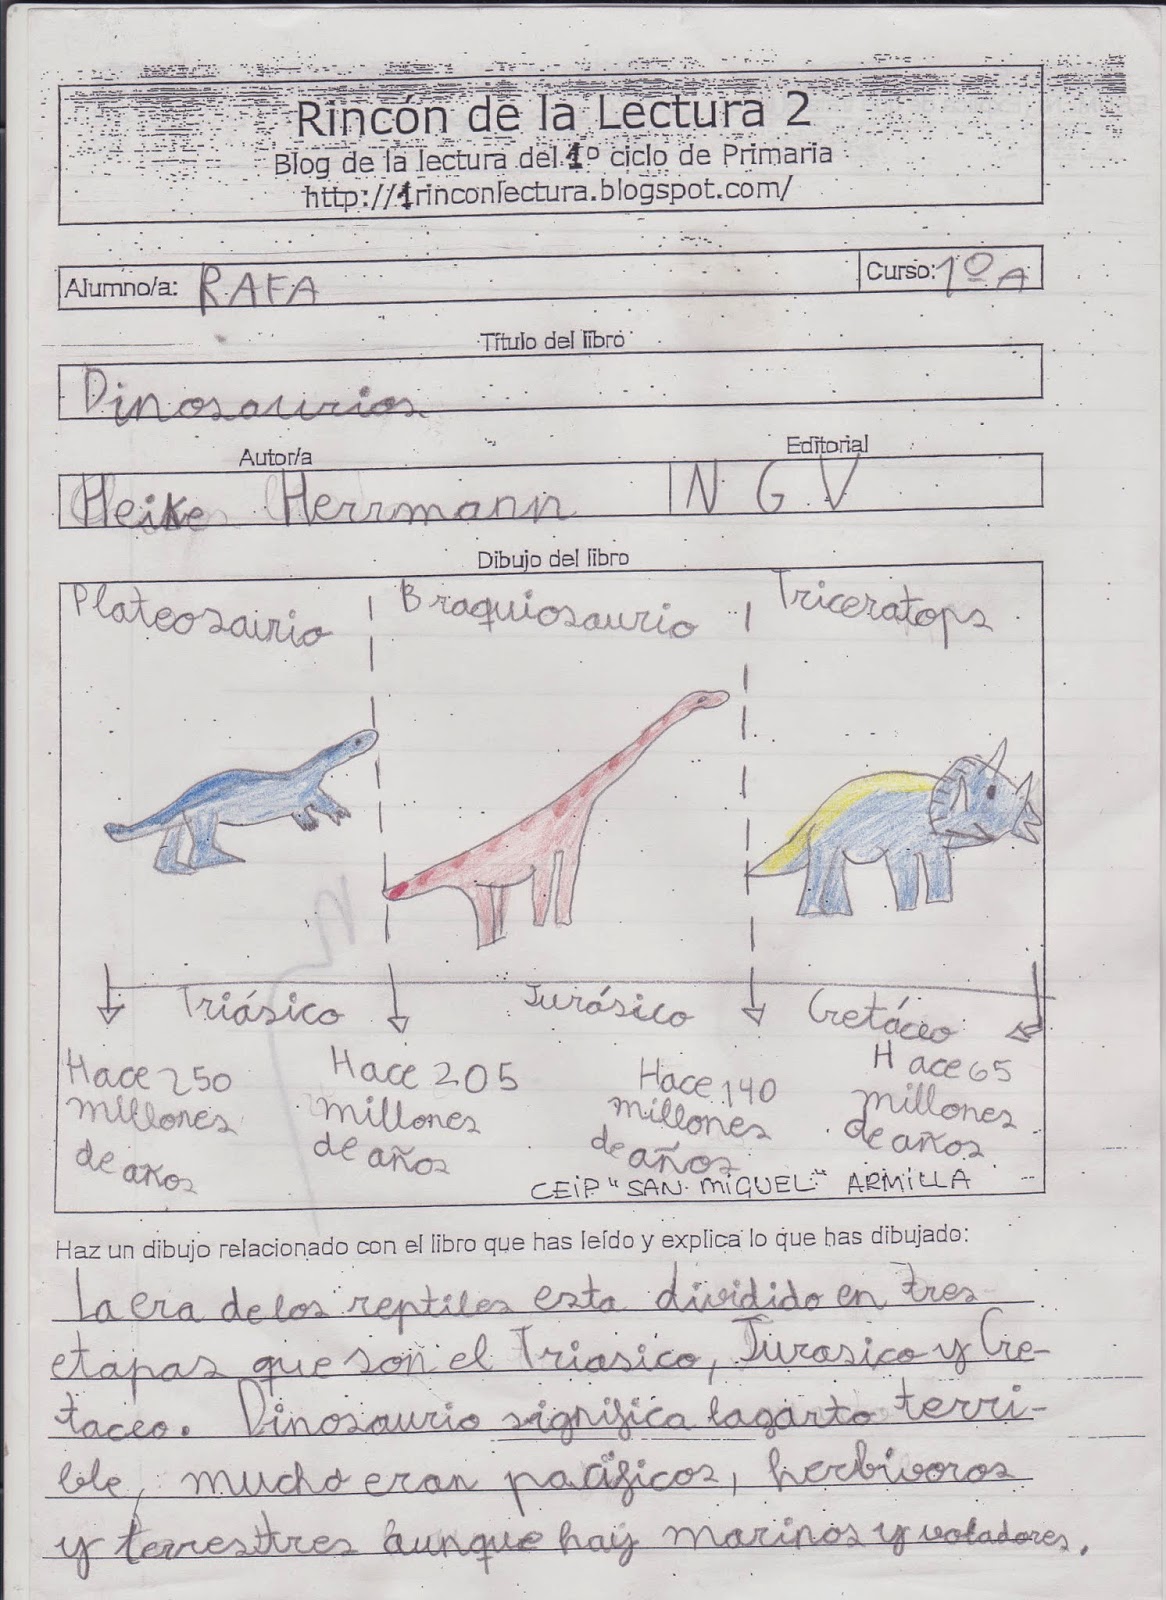 Rincón de la Lectura 2
Blog de la lectura del 1º ciclo de Primaria
http://1rinconlectura.blogspot.com/
Alumno/a: RAFA Curso: 1º A
Título del libro
Dinosaurios
Autor/a Editorial
Heike Herrmann N G V
Dibujo del libro
Plateosaurio Braquiosaurio Triceratops
Triásico Jurásico Cretáceo
Hace 250 Hace 205 Hace 140 Hace 65
millones millones millones millones
de años de años de años de años
CEIP "SAN MIGUEL" ARMILLA
Haz un dibujo relacionado con el libro que has leído y explica lo que has dibujado:
La era de los reptiles esta dividido en tres
etapas que son el Triasico, Jurasico y Cre-
taceo. Dinosaurio significa lagarto terri-
ble, mucho eran pacificos, herbivoros
y terrestres aunque hay marinos y voladores.